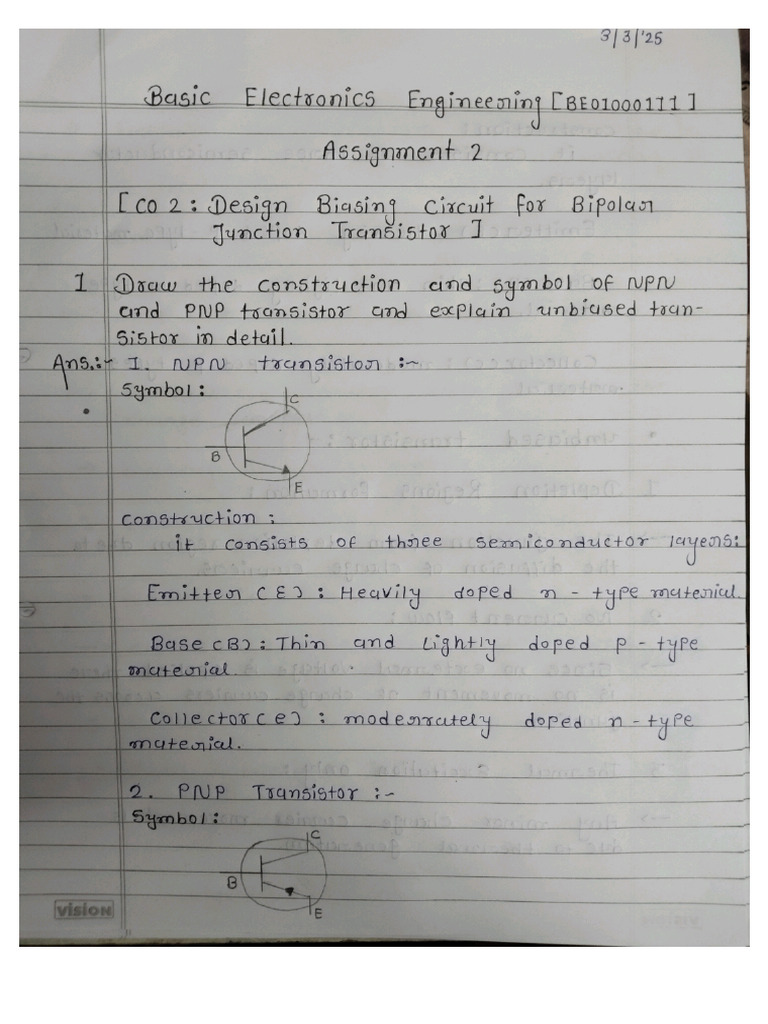 3/3/'25
Basic Electronics Engineering [BE01000111]
Assignment 2
[CO 2: Design Biasing Circuit for Bipolar
Junction Transistor]
1 Draw the construction and symbol of NPN
and PNP transistor and explain unbiased tran-
sistor in detail.
Ans.:- 1. NPN transistor :-
Symbol:
C
B
E
Construction :
it consists of three semiconductor layers:
Emitter (E) : Heavily doped n - type material.
Base (B) : Thin and Lightly doped p - type
material.
Collector (e) : moderrately doped n - type
material.
2. PNP Transistor :-
Symbol:
C
B
E
vision